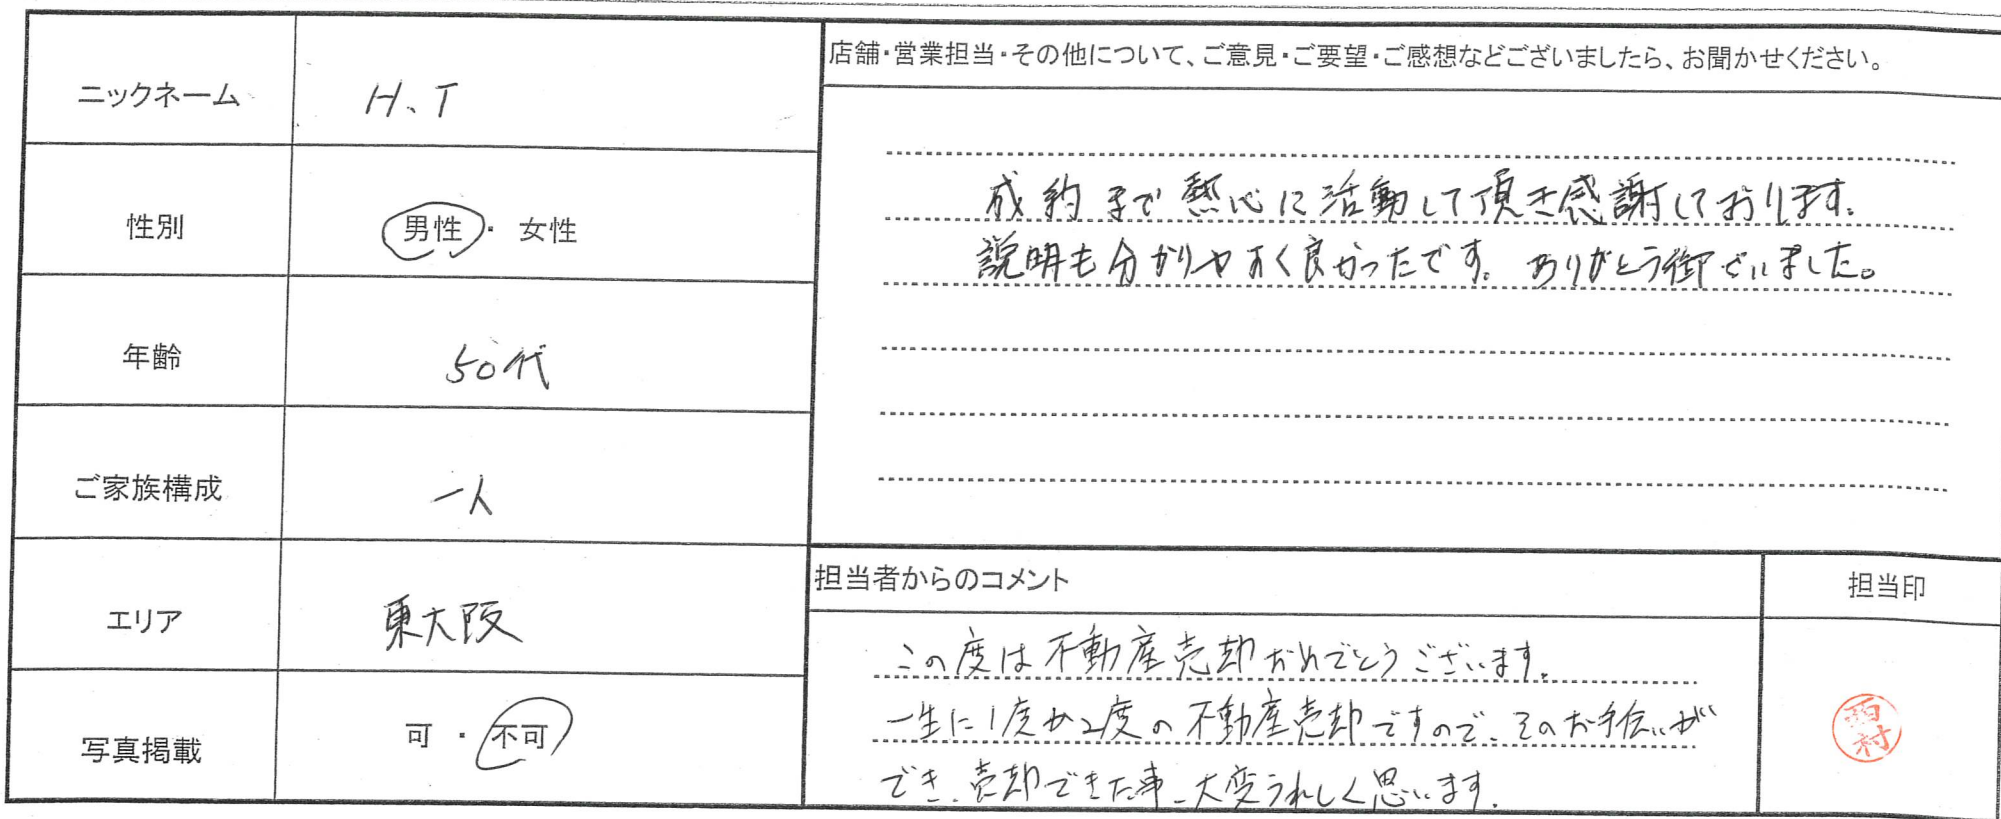 ニックネーム H、T
性別 男性・女性
年齢 50代
ご家族構成 一人
エリア 東大阪
写真掲載 可・不可
店舗・営業担当・その他について、ご意見・ご要望・ご感想などございましたら、お聞かせください。
成約まで熱心に活動して頂き感謝しております。
説明も分かりやすく良かったです。ありがとう御ざいました。
担当者からのコメント
この度は不動産売却おめでとうございます。
一生に1度か2度の不動産売却ですので、そのお手伝いが
でき、売却できた事、大変うれしく思います。
担当印
西村